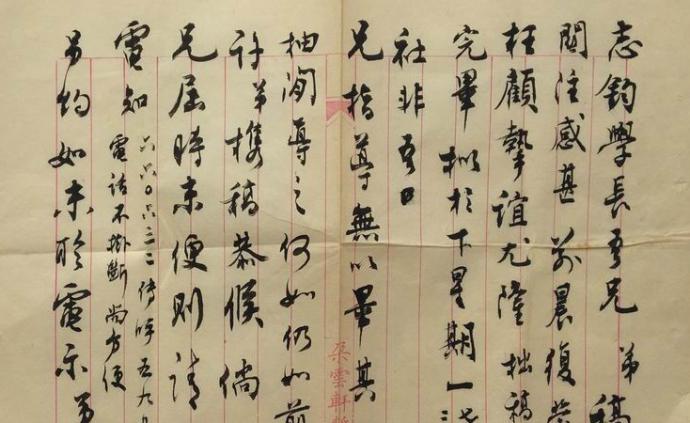 志鈞學長吾兄 弟稿
關注感甚 前晨復蒙
枉顧摯誼尤隆拙稿
完畢擬於下星期一
社非吾
兄指導無以畢其
抽閒導之何如仍如前
許弟攜稿恭候倘
兄屆時未便則請
電知
六六〇六三二傳呼五九
電話不掛斷尚方便
另約如未聆電示弟
朵雲軒